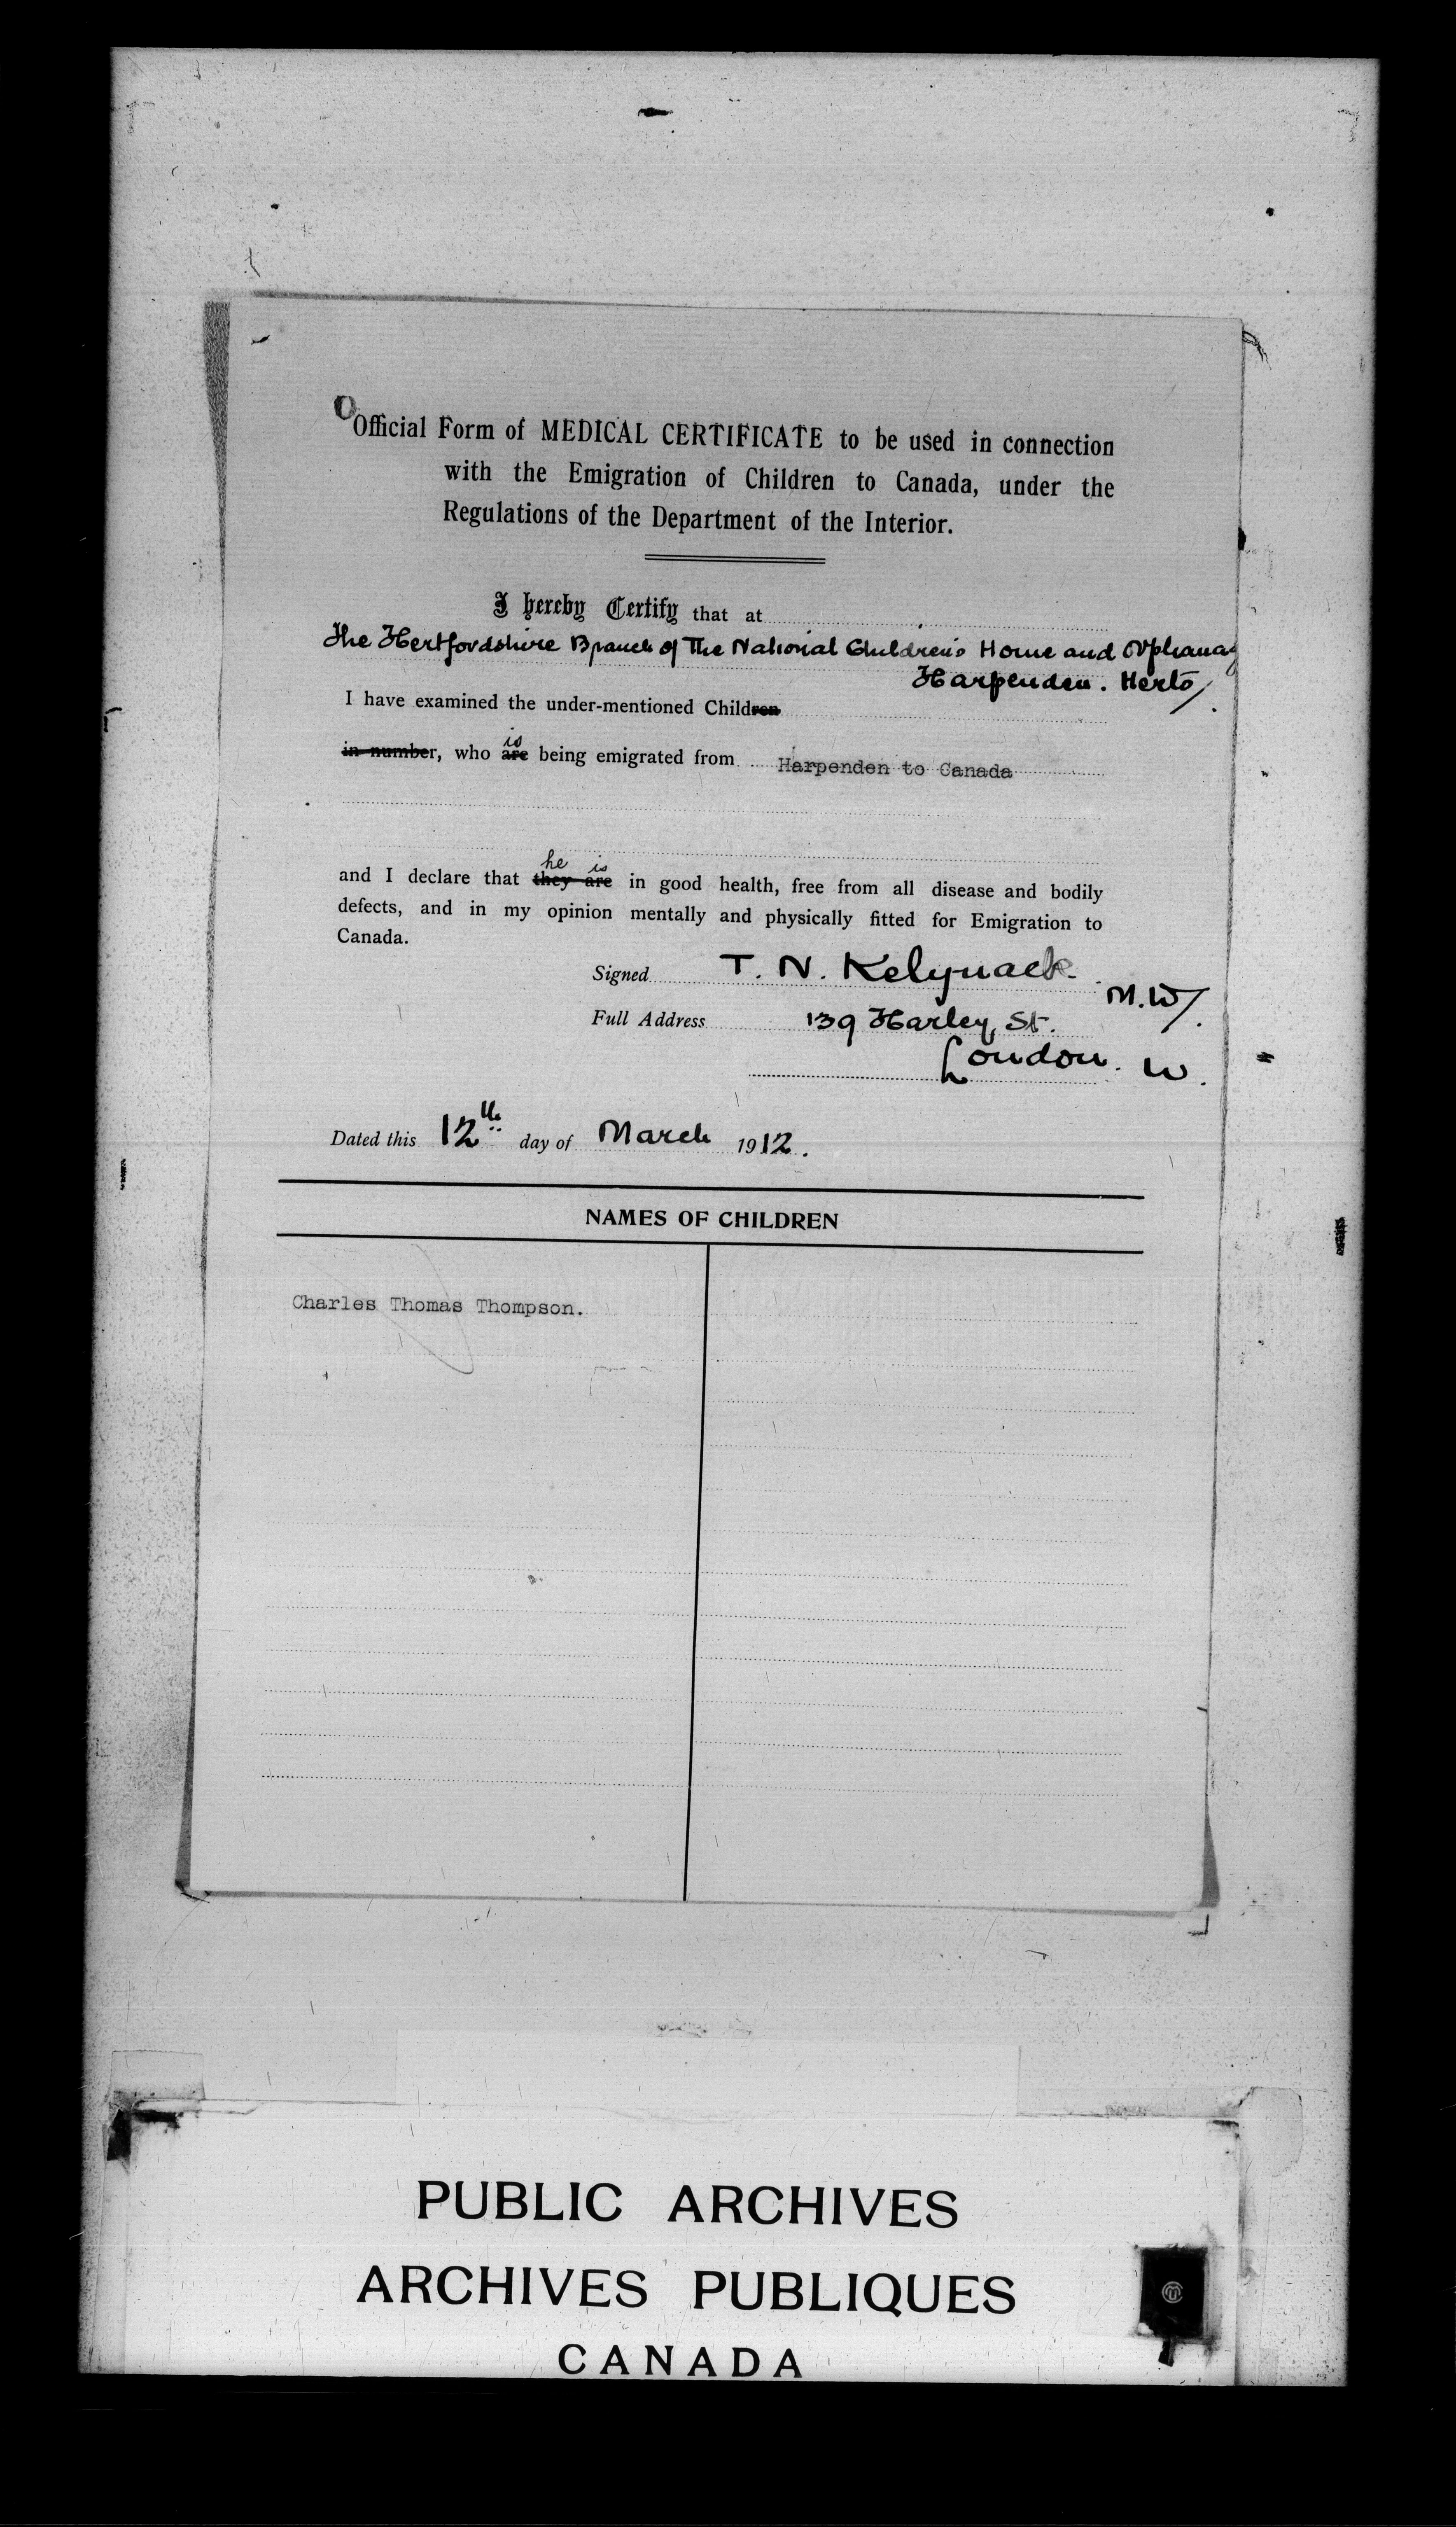 Official Form of MEDICAL CERTIFICATE to be used in connection
with the Emigration of Children to Canada, under the
Regulations of the Department of the Interior.
I hereby Certify that at
The Hertfordshire Branch of The National Children's Home and Orphanag
Harpenden. Herts/.
I have examined the under-mentioned Children
is
in number, who are being emigrated from Harpenden to Canada
he is
and I declare that they are in good health, free from all disease and bodily
defects, and in my opinion mentally and physically fitted for Emigration to
Canada.
Signed T. N. Kelynack
M.D/.
Full Address 139 Harley, St.
London. W.
Dated this 12th day of March 1912.
NAMES OF CHILDREN
Charles Thomas Thompson.
PUBLIC ARCHIVES
ARCHIVES PUBLIQUES
CANADA